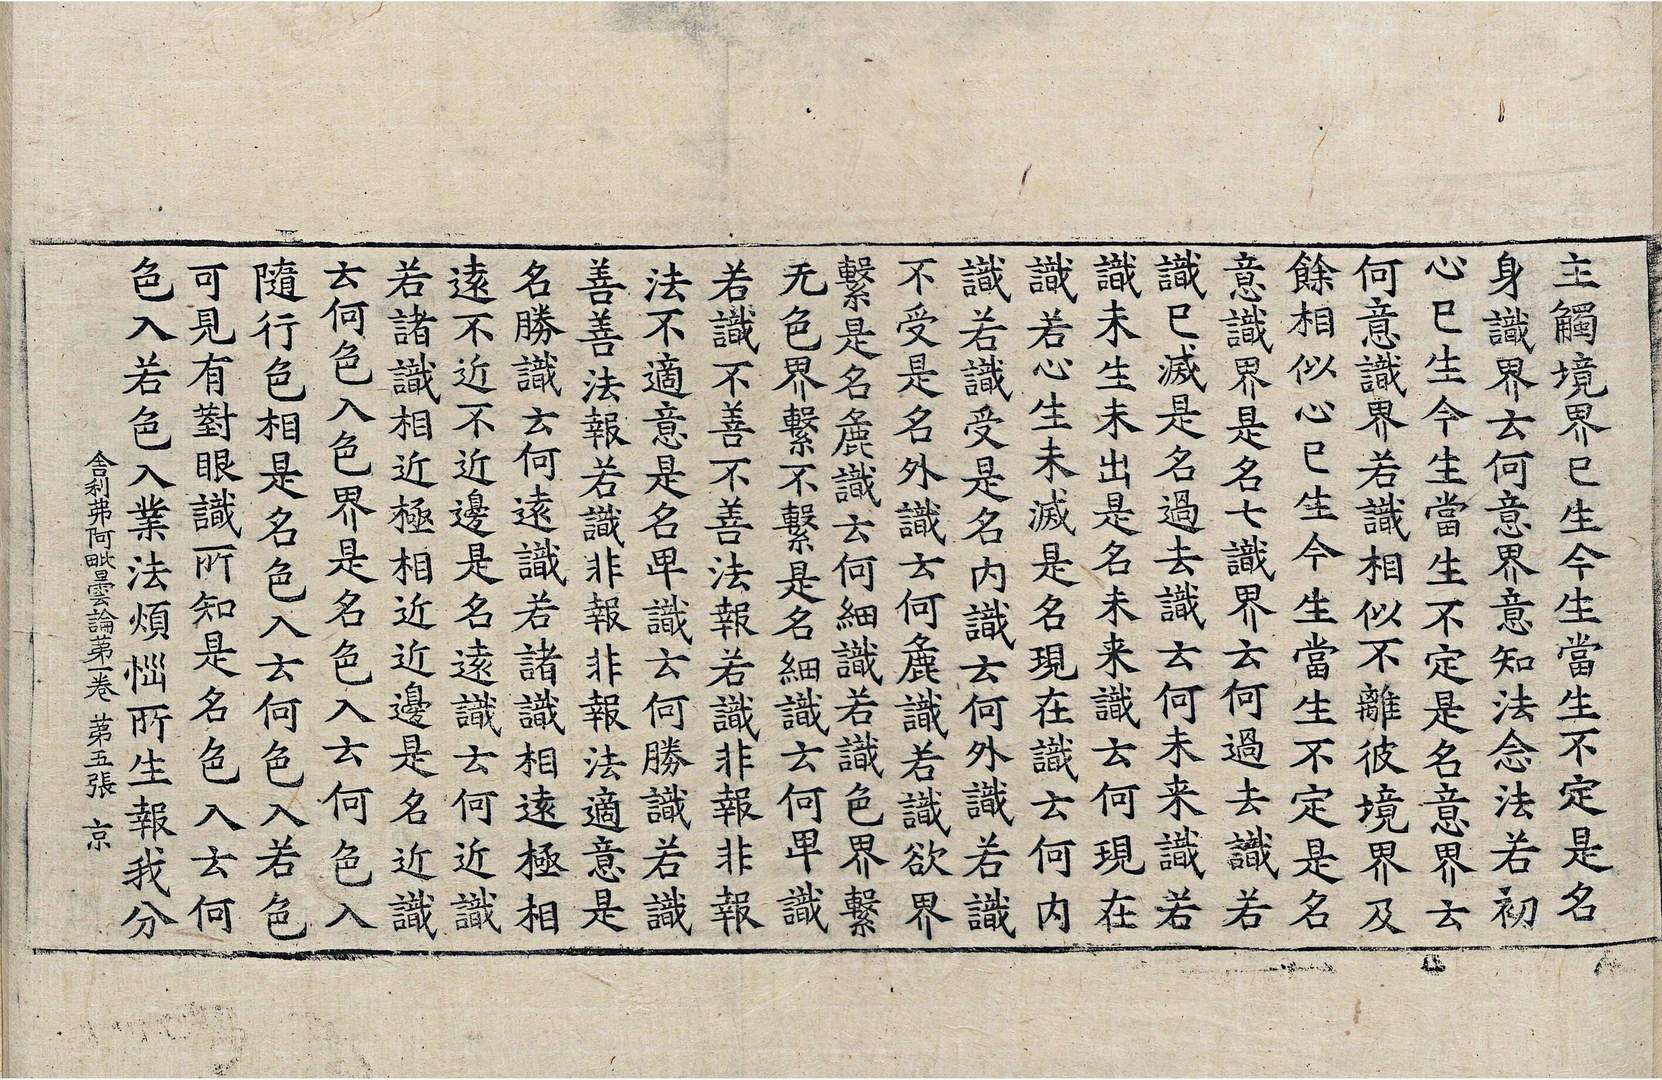 主觸境界已生今生當生不定是名
身識界云何意界意知法念法若初
心已生今生當生不定是名意界云
何意識界若識相似不離彼境界及
餘相似心已生今生當生不定是名
意識界是名七識界云何過去識若
識已滅是名過去識云何未来識若
識未生未出是名未来識云何現在
識若心生未滅是名現在識云何内
識若識受是名内識云何外識若識
不受是名外識云何麁識若識欲界
繫是名麁識云何細識若識色界繫
无色界繫不繫是名細識云何卑識
若識不善不善法報若識非報非報
法不適意是名卑識云何勝識若識
善善法報若識非報非報法適意是
名勝識云何遠識若諸識相遠極相
遠不近不近邊是名遠識云何近識
若諸識相近極相近近邊是名近識
云何色入色界是名色入云何色入
隨行色相是名色入云何色入若色
可見有對眼識所知是名色入云何
色入若色入業法煩惱所生報我分
舎利弗阿毗曇論苐一卷 苐五張 京